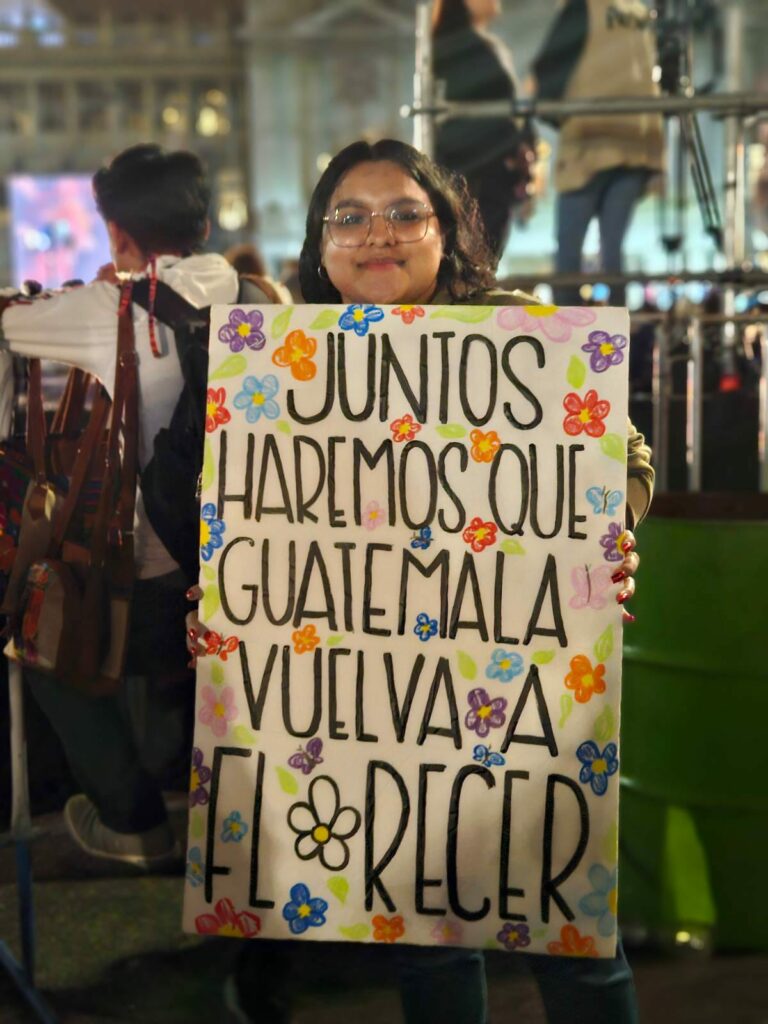 JUNTOS
HAREMOS QUE
GUATEMALA
VUELVA A
FLORECER